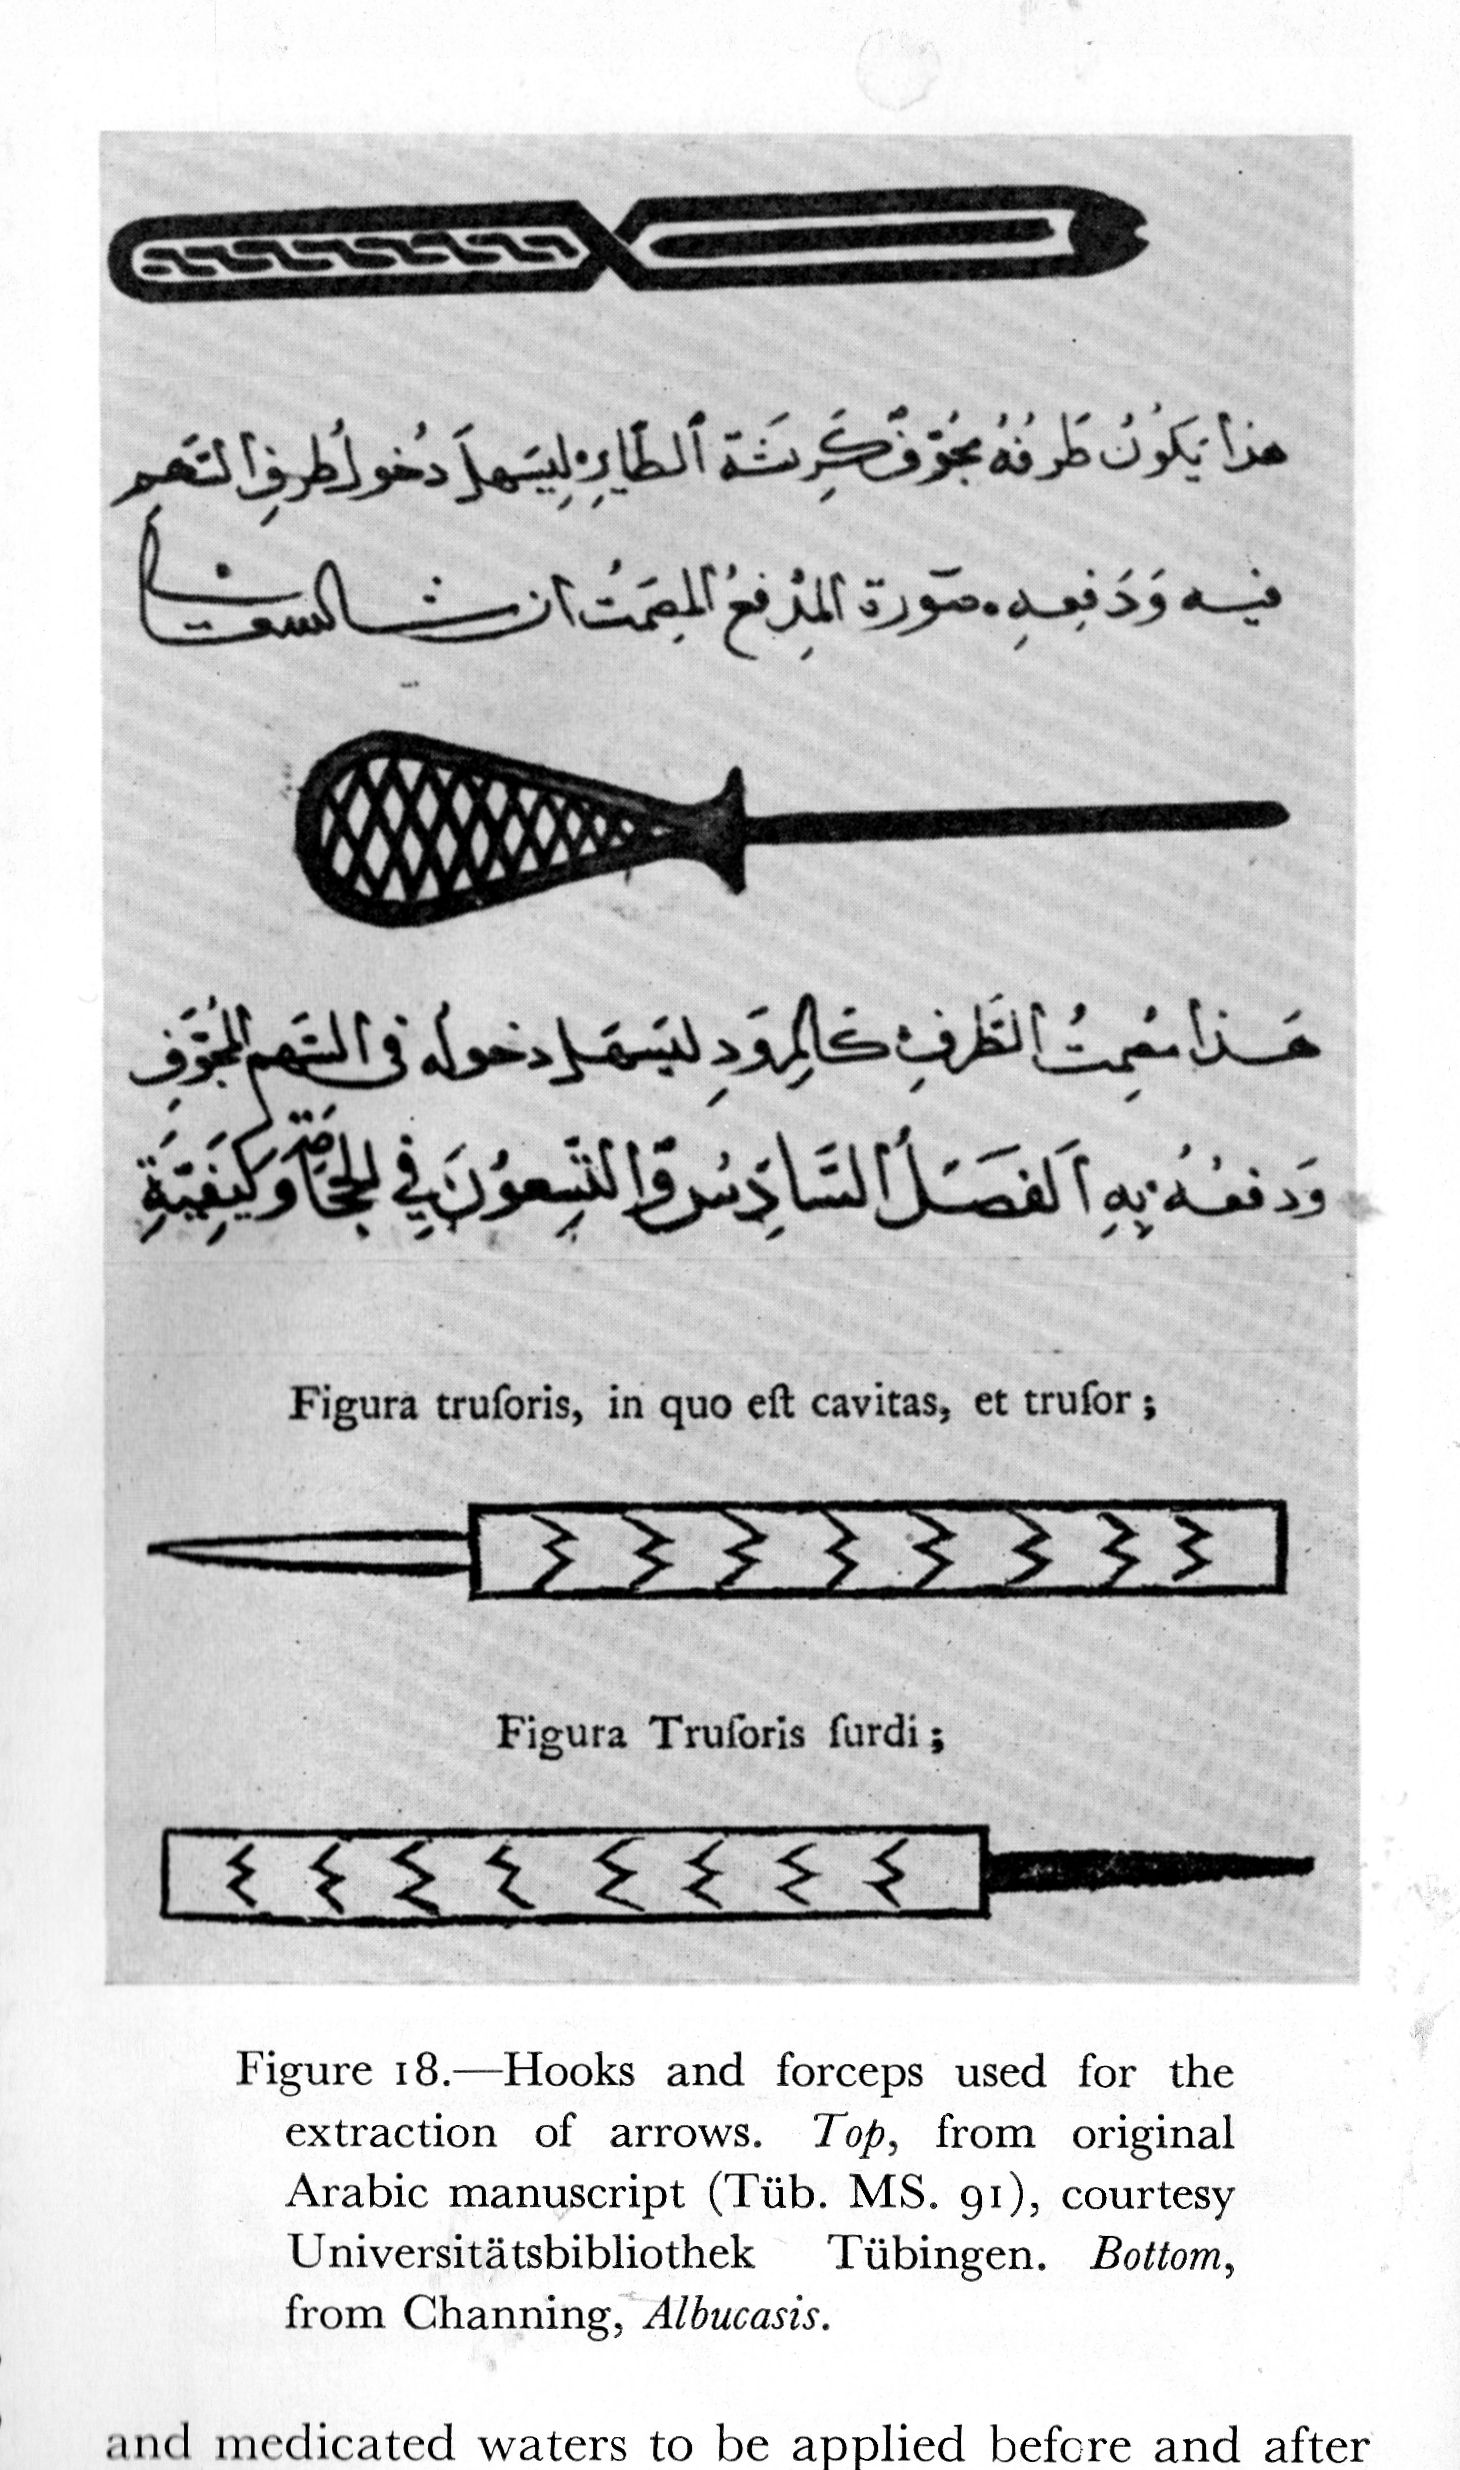 هذا يَكُونُ طَرفُهُ مُجَوَّفٌ كَرِيشَة الطَّايِرِ لِيَسَهلَ دُخولُ طرفِ السَّهمِ
فيه وَدَفعِهِ . صورة المِدْفعُ المِصمَتُ ان شا الله
هَذا مصمِتُ الطَّرفِ كَالمِروَدِ ليَسهَل دخوله فى السَّهم المُجوَّفِ
وَدفعُهُ بِهِ الفَصَلُ السَّادِسُ وَالتِّسِعوُنَ فِي الحِجَامَةِ وَكَيفِيَّةِ
Figura truſoris, in quo eſt cavitas, et truſor;
Figura Truſoris ſurdi;
Figure 18.—Hooks and forceps used for the
extraction of arrows. Top, from original
Arabic manuscript (Tüb. MS. 91), courtesy
Universitätsbibliothek Tübingen. Bottom,
from Channing, Albucasis.
and medicated waters to be applied before and after